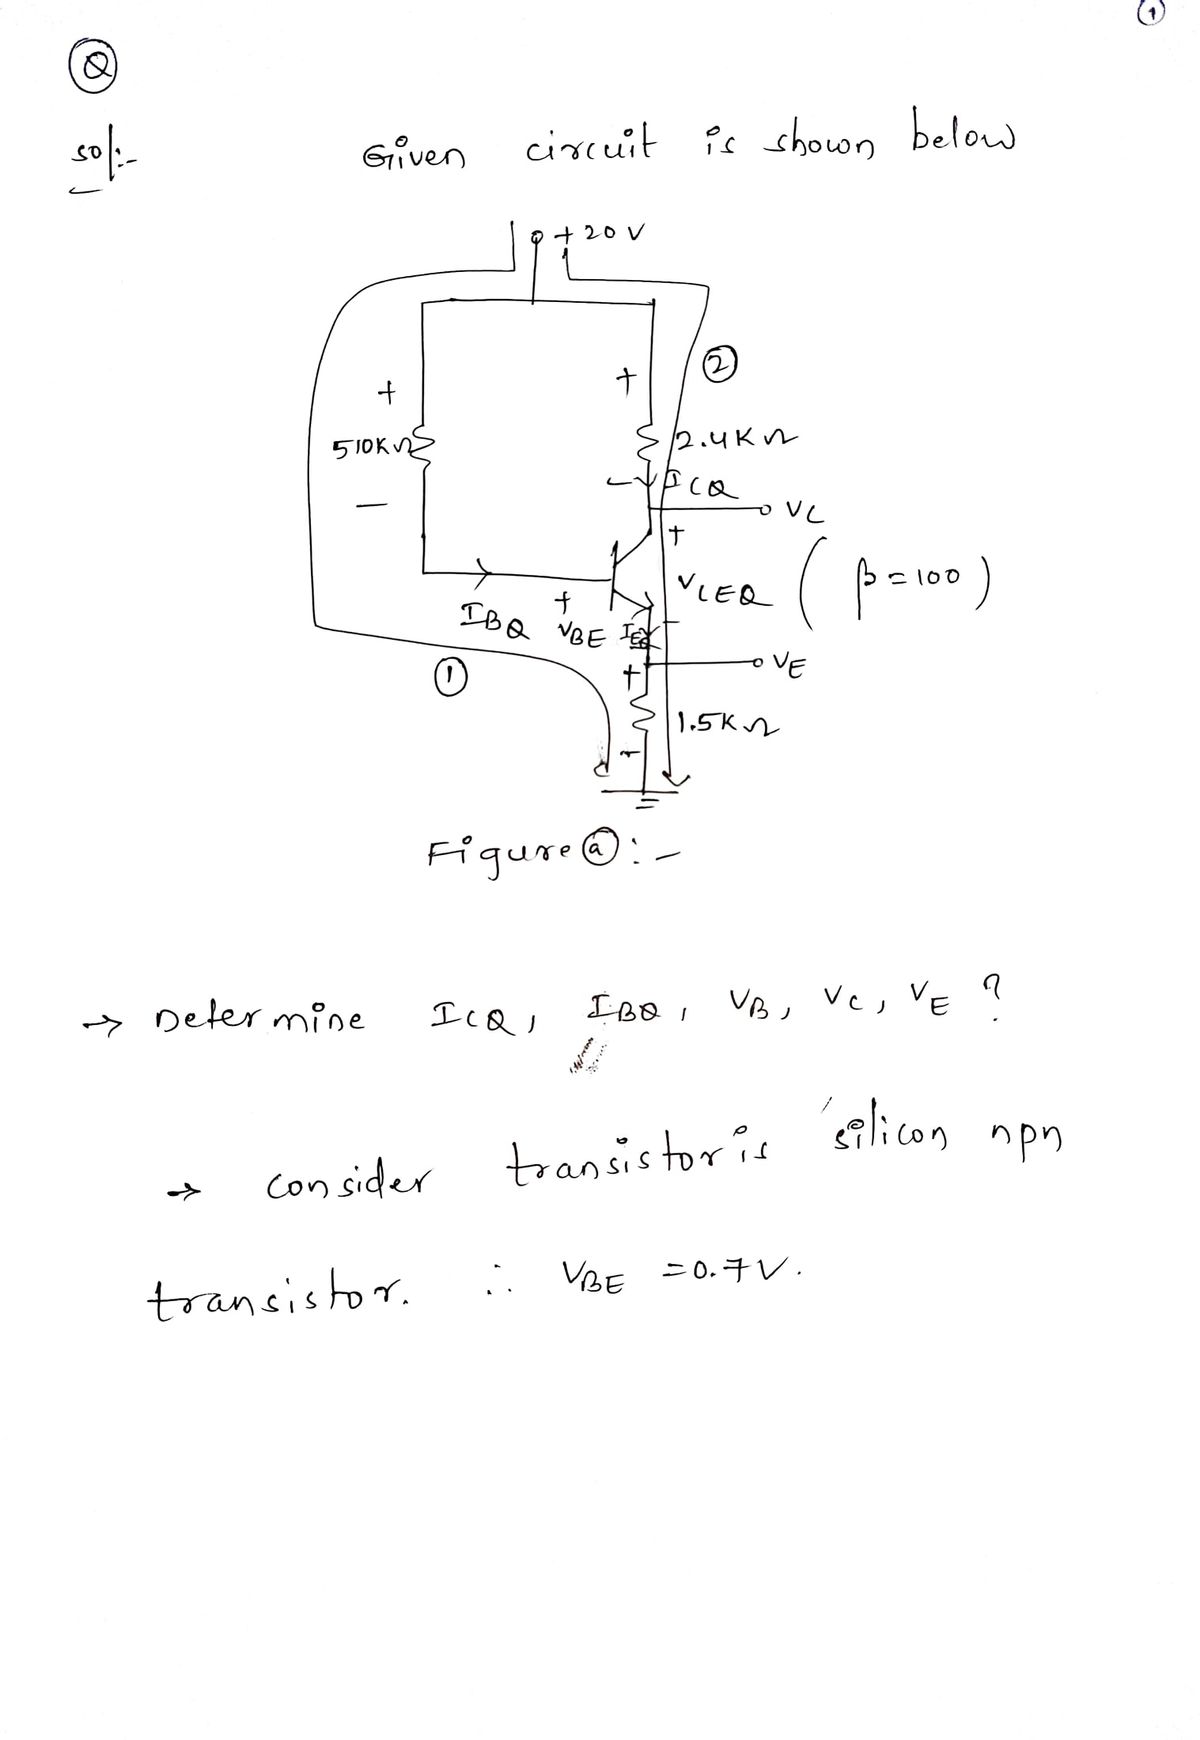 1
Q
sol:-
Given circuit is shown below
+20V
2
+
+
510KΩ
2.4KΩ
ICQ
-
VC
+
VCEQ
(β=100)
IBQ
+
VBE
IEQ
-
VE
1
+
1.5KΩ
-
Figure ⓐ:-
→ Determine ICQ, IBQ, VB, VC, VE ?
→ consider transistor is silicon npn
transistor. ∴ VBE =0.7V.